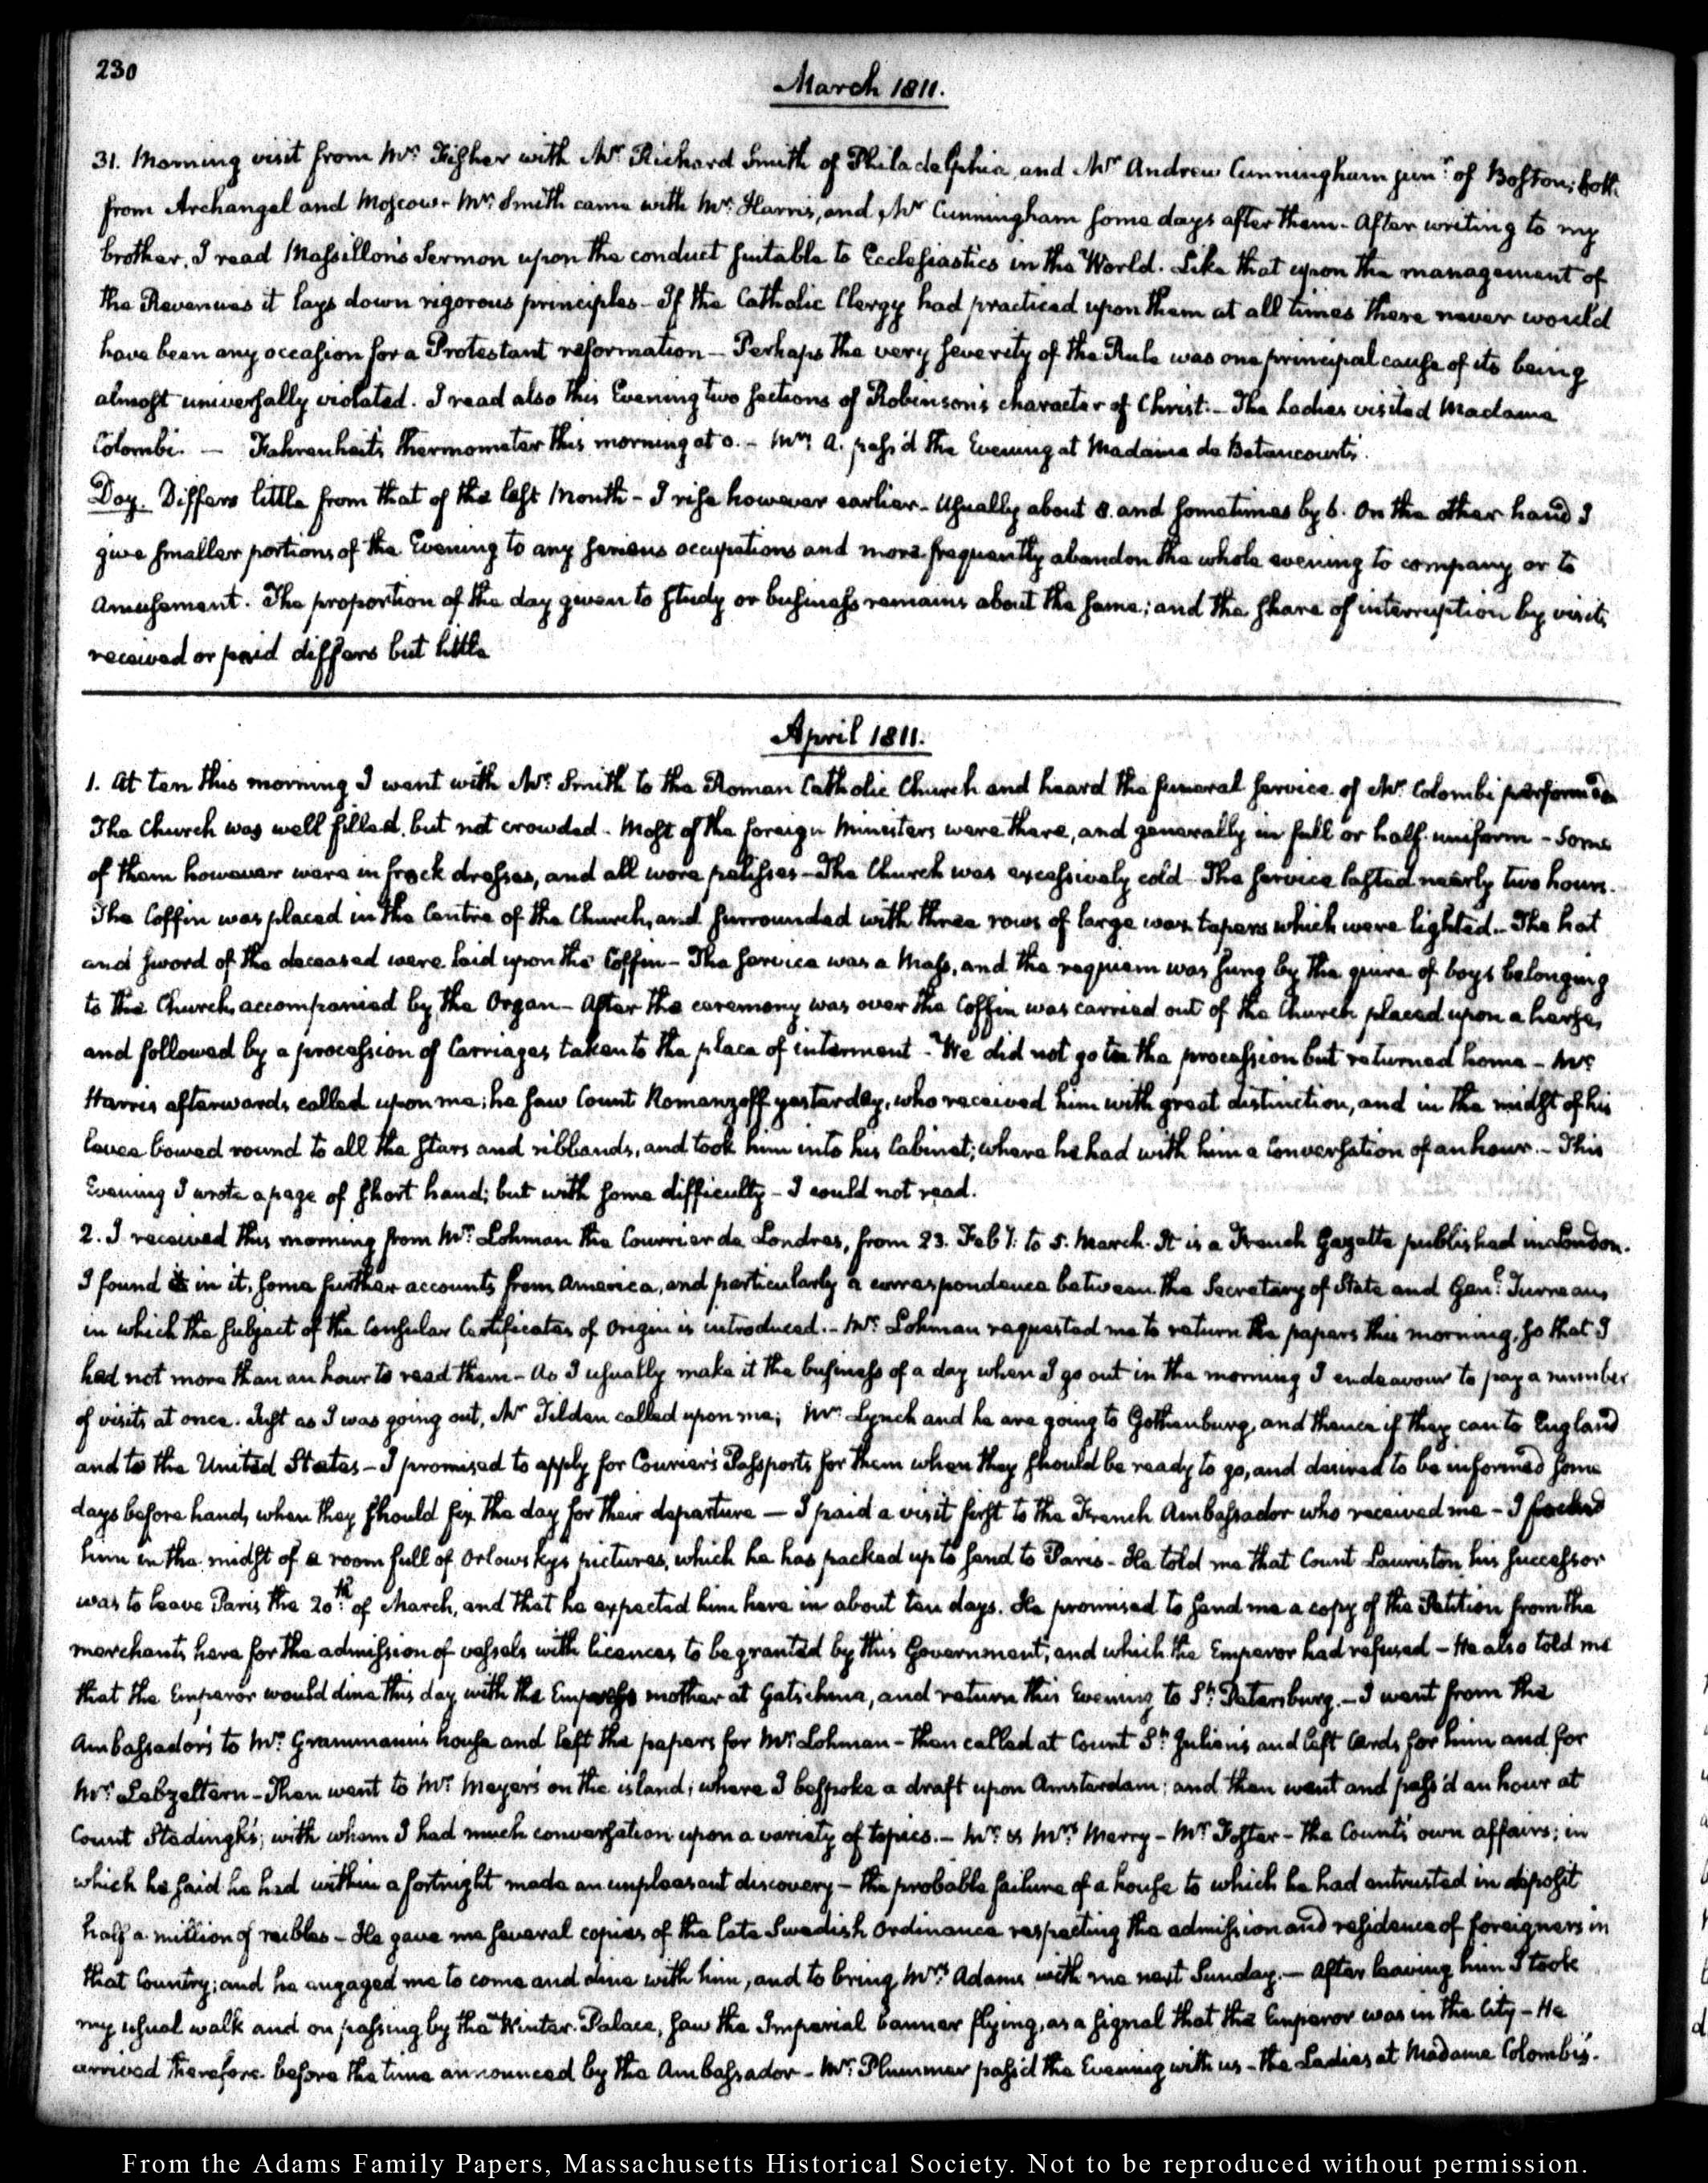 230
March 1811.
31. Morning visit from Mr. Fisher with Mr. Richard Smith of Philadelphia, and Mr. Andrew Cunningham junr. of Boston; both
from Archangel and Moscow. Mr. Smith came with Mr. Harris, and Mr. Cunningham some days after them. After writing to my
brother, I read Massillon's Sermon upon the conduct suitable to Ecclesiastics in the World. Like that upon the management of
the Revenues it lays down rigorous principles— If the Catholic Clergy had practiced upon them at all times there never would
have been any occasion for a Protestant reformation— Perhaps the very severity of the Rule was one principal cause of its being
almost universally violated. I read also this Evening two sections of Robinson's character of Christ.— The Ladies visited Madame
Colombi. — Fahrenheit's thermometer this morning at 0.— Mrs. A. pass'd the Evening at Madame de Betancourt's.
Day. Differs little from that of the last Month— I rise however earlier. Usually about 8. and sometimes by 6. On the other hand I
give smaller portions of the Evening to any serious occupations and more frequently abandon the whole evening to company or to
Amusement. The proportion of the day given to study or business remains about the same; and the share of interruption by visits
received or paid differs but little
April 1811.
1. At ten this morning I went with Mr. Smith to the Roman Catholic Church and heard the funeral service of Mr. Colombi performed
The Church was well filled, but not crowded. Most of the foreign Ministers were there, and generally in full or half uniform— Some
of them however were in frock dresses, and all wore pelisses— The Church was excessively cold— The service lasted nearly two hours.
The Coffin was placed in the Centre of the Church, and surrounded with three rows of large wax tapers which were lighted.— The hat
and sword of the deceased were laid upon the Coffin— The service was a Mass, and the requiem was sung by the quire of boys belonging
to the Church, accompanied by the Organ— After the ceremony was over the Coffin was carried out of the Church placed upon a herse,
and followed by a procession of Carriages taken to the place of interment.— We did not go to the procession but returned home— Mr.
Harris afterwards called upon me; he saw Count Romanzoff yesterday, who received him with great distinction, and in the midst of his
levee bowed round to all the stars and ribbands, and took him into his Cabinet; where he had with him a Conversation of an hour.— This
Evening I wrote a page of short hand; but with some difficulty— I could not read.
2. I received this morning from Mr. Lohman the Courrier de Londres, from 23. Feby. to 5. March. It is a French Gazette published in London.
I found in it, some further accounts from America, and particularly a correspondence between the Secretary of State and Genl. Turreau,
in which the subject of the Consular Certificates of Origin is introduced.— Mr. Lohman requested me to return the papers this morning, so that I
had not more than an hour to read them— As I usually make it the business of a day when I go out in the morning I endeavour to pay a number
of visits at once. Just as I was going out, Mr. Tilden called upon me; Mr. Lynch and he are going to Gothenburg, and thence if they can to England
and to the United States— I promised to apply for Courier's Passports for them when they should be ready to go, and desired to be informed some
days before hand, when they should fix the day for their departure — I paid a visit first to the French Ambassador who received me— I found
him in the midst of a room full of Orlowsky's pictures, which he has packed up to send to Paris— He told me that Count Lauriston his successor
was to leave Paris the 20th. of March, and that he expected him here in about ten days. He promised to send me a copy of the Petition from the
merchants here for the admission of vessels with licences to be granted by this Government; and which the Emperor had refused— He also told me
that the Emperor would dine this day with the Empress mother at Gatschina, and return this Evening to St. Petersburg.— I went from the
Ambassador's to Mr. Grammann's house and left the papers for Mr. Lohman— then called at Count St. Julien's and left Cards for him and for
Mr. Lebzeltern— Then went to Mr. Meyer's on the island; where I bespoke a draft upon Amsterdam; and then went and pass'd an hour at
Count Stedingk's; with whom I had much conversation upon a variety of topics.— Mr. & Mrs. Merry— Mr. Foster— The Count's own affairs; in
which he said he had within a fortnight made an unpleasant discovery— the probable failure of a house to which he had entrusted in deposit
half a million of roubles— He gave me several copies of the late Swedish Ordinance respecting the admission and residence of foreigners in
that Country; and he engaged me to come and dine with him, and to bring Mrs. Adams with me next Sunday.— After leaving him I took
my usual walk and on passing by the Winter Palace, saw the Imperial banner flying, as a signal that the Emperor was in the City— He
arrived therefore before the time announced by the Ambassador— Mr. Plummer pass'd the Evening with us— the Ladies at Madame Colombi's.
From the Adams Family Papers, Massachusetts Historical Society. Not to be reproduced without permission.